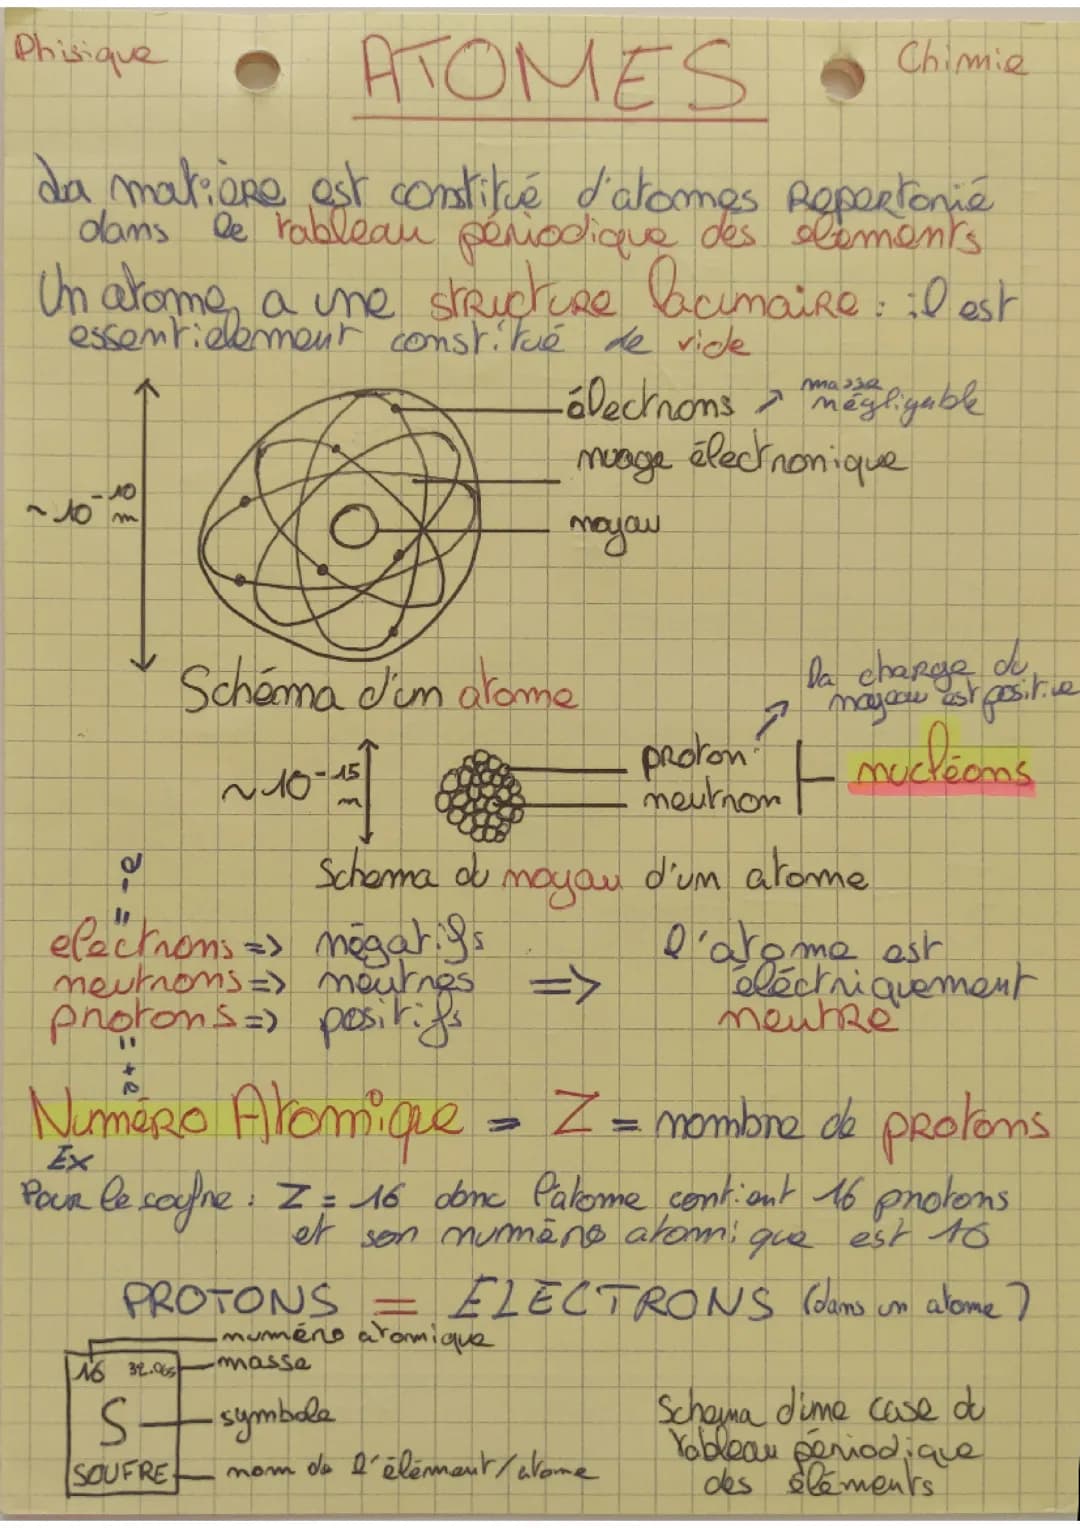 Phisique
ATOMES
Chimie
La matière est constitué d'atomes repertorié
dans le tableau périodique des elements
Un atome a une structure lacunaire : il est
essentielement constitué de vide
électrons → masse négligable
nuage électronique
noyau
~10⁻¹⁰ m
Schéma d'un atome
la charge du
noyau est positive
~10⁻¹⁵ m
proton
neutron
nucléons
Schema du noyau d'un atome
= -e
electrons => négatifs
neutrons => neutres
protons => positifs
= +e
=> l'atome est
éléctriquement
neutre
Numéro Atomique = Z = nombre de protons
Ex
Pour le soufre : Z = 16 donc l'atome contient 16 protons
et son numéro atomique est 16
PROTONS = ELECTRONS (dans un atome)
numéro atomique
16 32.065 masse
S symbole
SOUFRE nom de l'élément/atome
Schema d'une case du
tableau périodique
des éléments